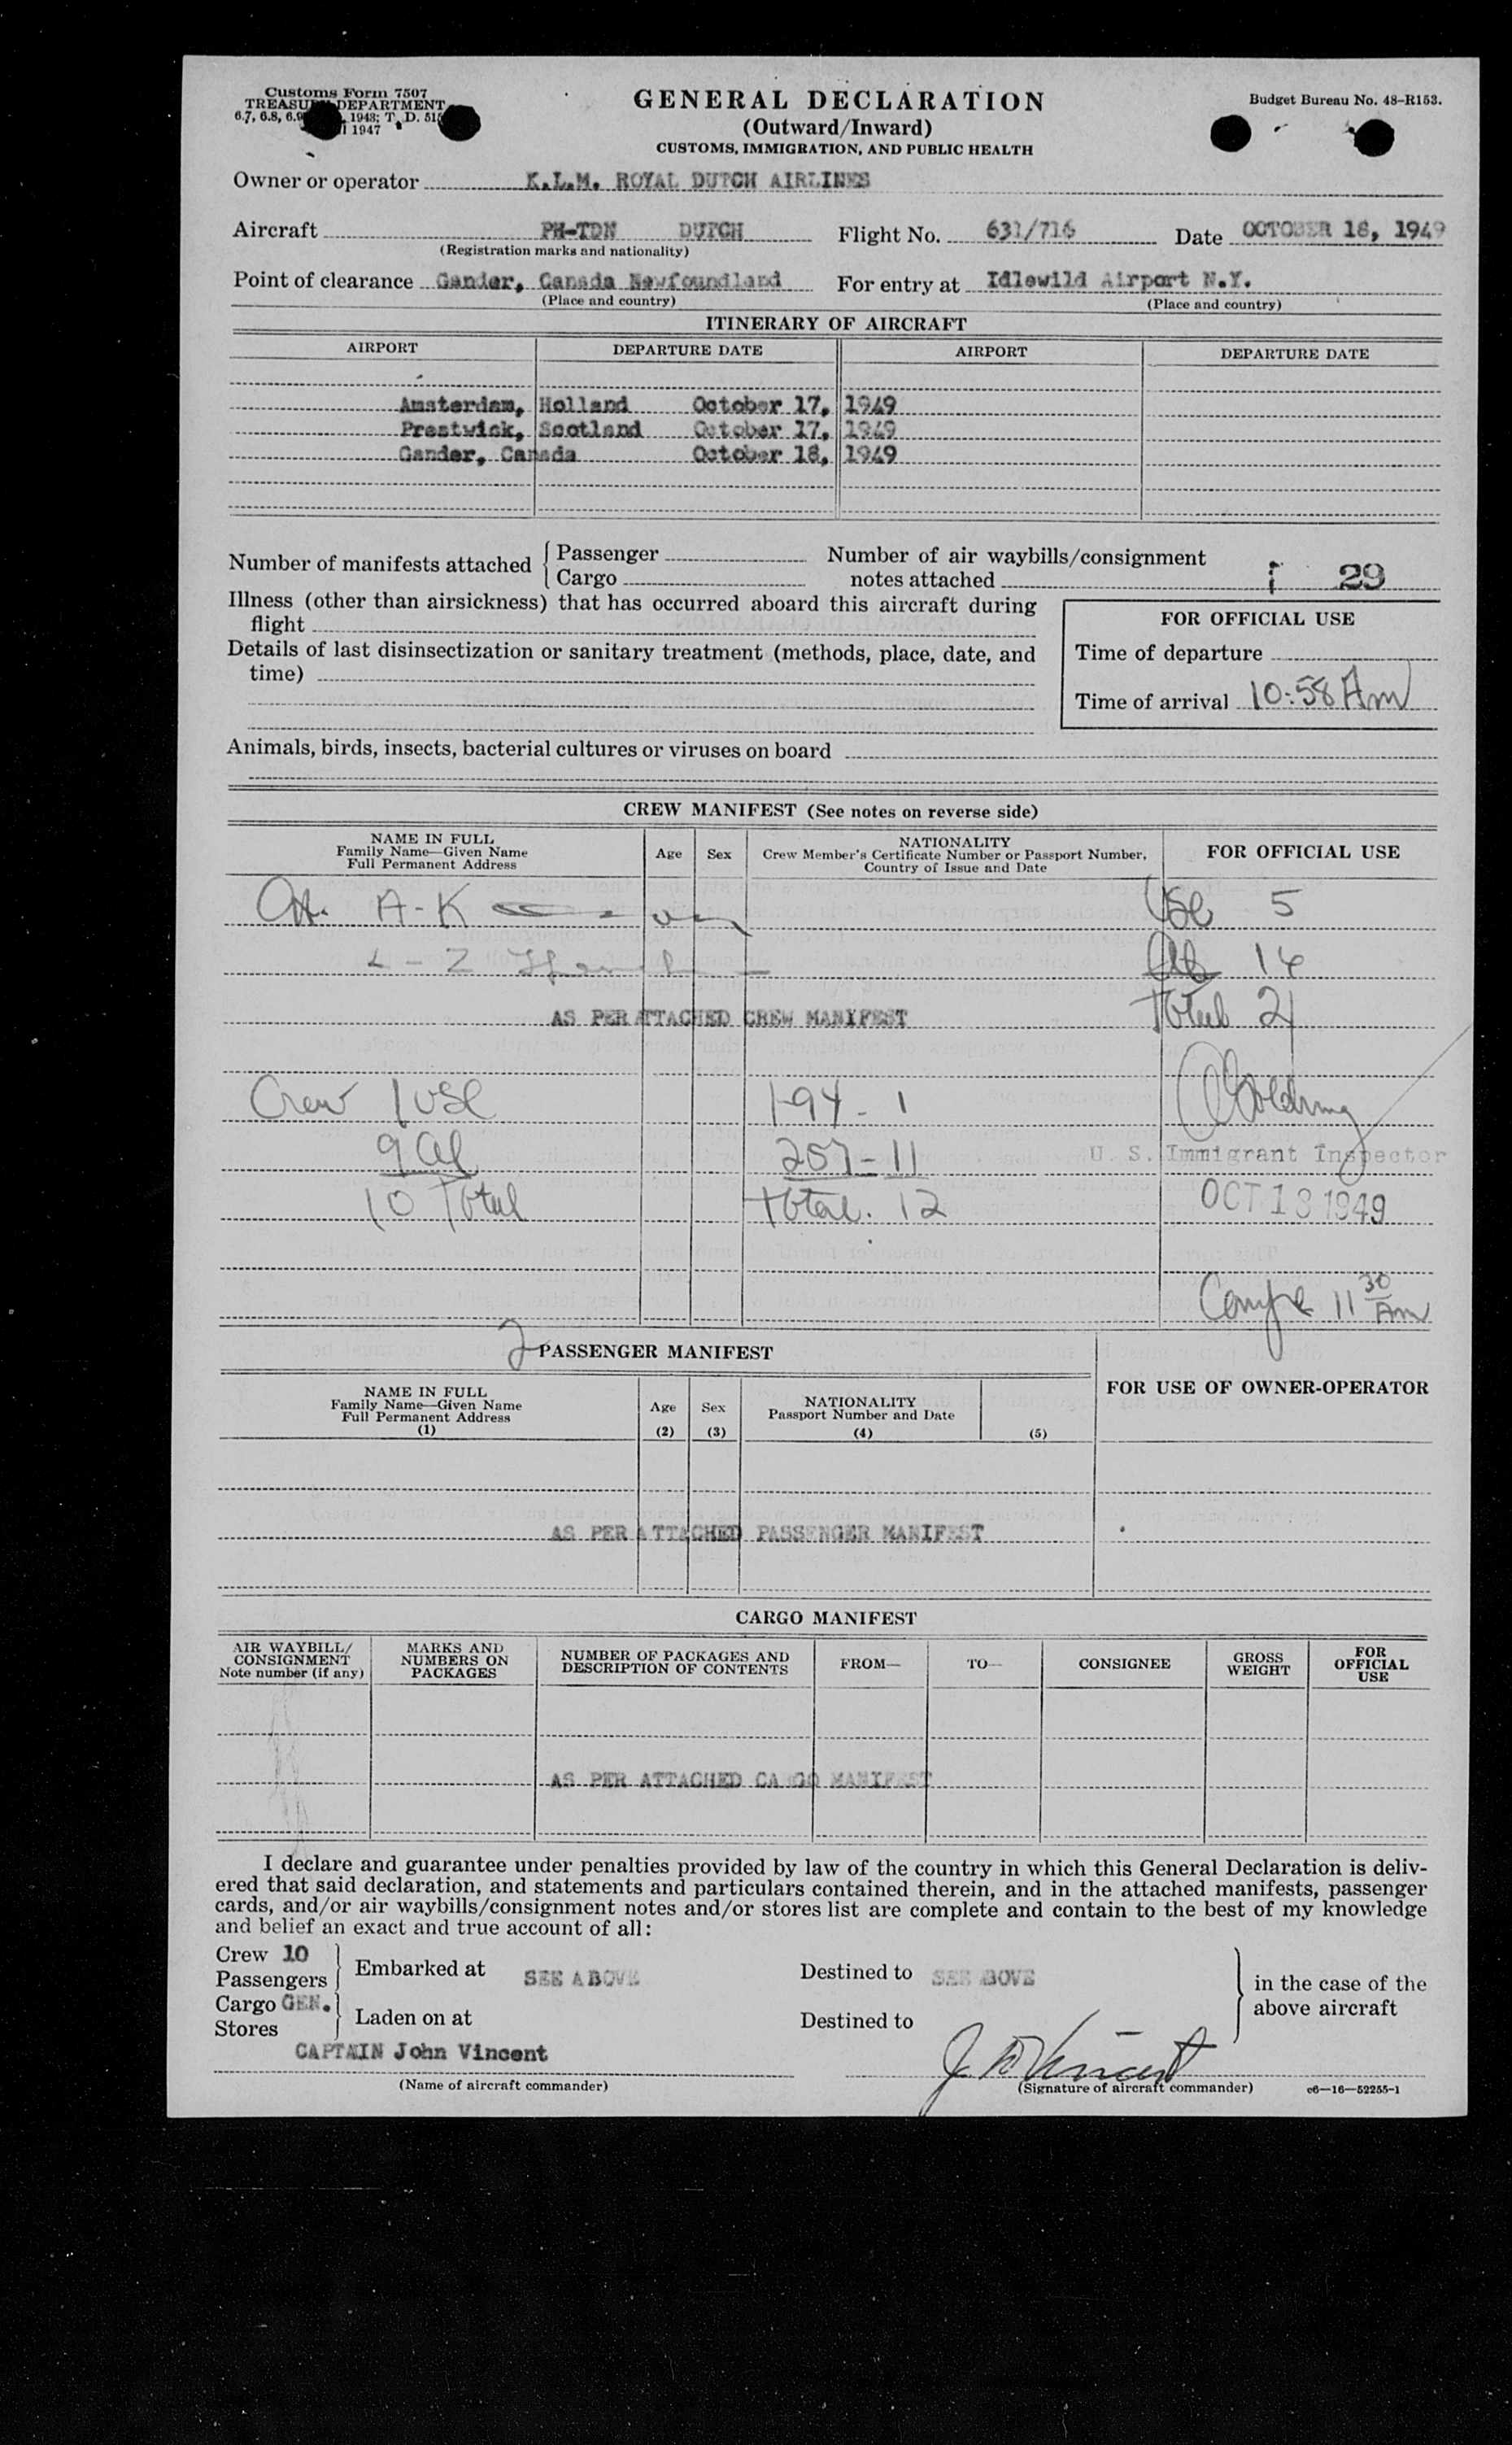 Customs Form 7507
TREASURY DEPARTMENT
6.7, 6.8, 6.9 1948; T. D. 515
1947
GENERAL DECLARATION
(Outward/Inward)
CUSTOMS, IMMIGRATION, AND PUBLIC HEALTH
Budget Bureau No. 48-R153.
Owner or operator K.L.M. ROYAL DUTCH AIRLINES
Aircraft PH-TDN DUTCH Flight No. 631/716 Date OCTOBER 18, 1949
(Registration marks and nationality)
Point of clearance Gander, Canada Newfoundland For entry at Idlewild Airport N.Y.
(Place and country) (Place and country)
ITINERARY OF AIRCRAFT
AIRPORT DEPARTURE DATE AIRPORT DEPARTURE DATE
Amsterdam, Holland October 17, 1949
Prestwick, Scotland October 17, 1949
Gander, Canada October 18, 1949
Number of manifests attached { Passenger
Cargo
Number of air waybills/consignment
notes attached 29
Illness (other than airsickness) that has occurred aboard this aircraft during
flight
Details of last disinsectization or sanitary treatment (methods, place, date, and
time)
FOR OFFICIAL USE
Time of departure
Time of arrival 10:58 Am
Animals, birds, insects, bacterial cultures or viruses on board
CREW MANIFEST (See notes on reverse side)
NAME IN FULL
Family Name—Given Name
Full Permanent Address
Age Sex
NATIONALITY
Crew Member's Certificate Number or Passport Number,
Country of Issue and Date
FOR OFFICIAL USE
A-K USC 5
L-Z 14
AS PER ATTACHED CREW MANIFEST Total 21
Crew 1 USC I-94 - 1 Goldring
9 Al 257-11 U. S. Immigrant Inspector
10 Total Total. 12 OCT 18 1949
11 30 Am
2 PASSENGER MANIFEST
FOR USE OF OWNER-OPERATOR
NAME IN FULL
Family Name—Given Name
Full Permanent Address
(1)
Age
(2)
Sex
(3)
NATIONALITY
Passport Number and Date
(4) (5)
AS PER ATTACHED PASSENGER MANIFEST
CARGO MANIFEST
AIR WAYBILL/
CONSIGNMENT
Note number (if any)
MARKS AND
NUMBERS ON
PACKAGES
NUMBER OF PACKAGES AND
DESCRIPTION OF CONTENTS
FROM— TO— CONSIGNEE
GROSS
WEIGHT
FOR
OFFICIAL
USE
AS PER ATTACHED CARGO MANIFEST
I declare and guarantee under penalties provided by law of the country in which this General Declaration is deliv-
ered that said declaration, and statements and particulars contained therein, and in the attached manifests, passenger
cards, and/or air waybills/consignment notes and/or stores list are complete and contain to the best of my knowledge
and belief an exact and true account of all:
Crew 10
Passengers
Embarked at SEE ABOVE Destined to SEE BOVE
Cargo GEN.
Stores
Laden on at Destined to
in the case of the
above aircraft
CAPTAIN John Vincent
(Name of aircraft commander)
(Signature of aircraft commander) c6—16—52255-1